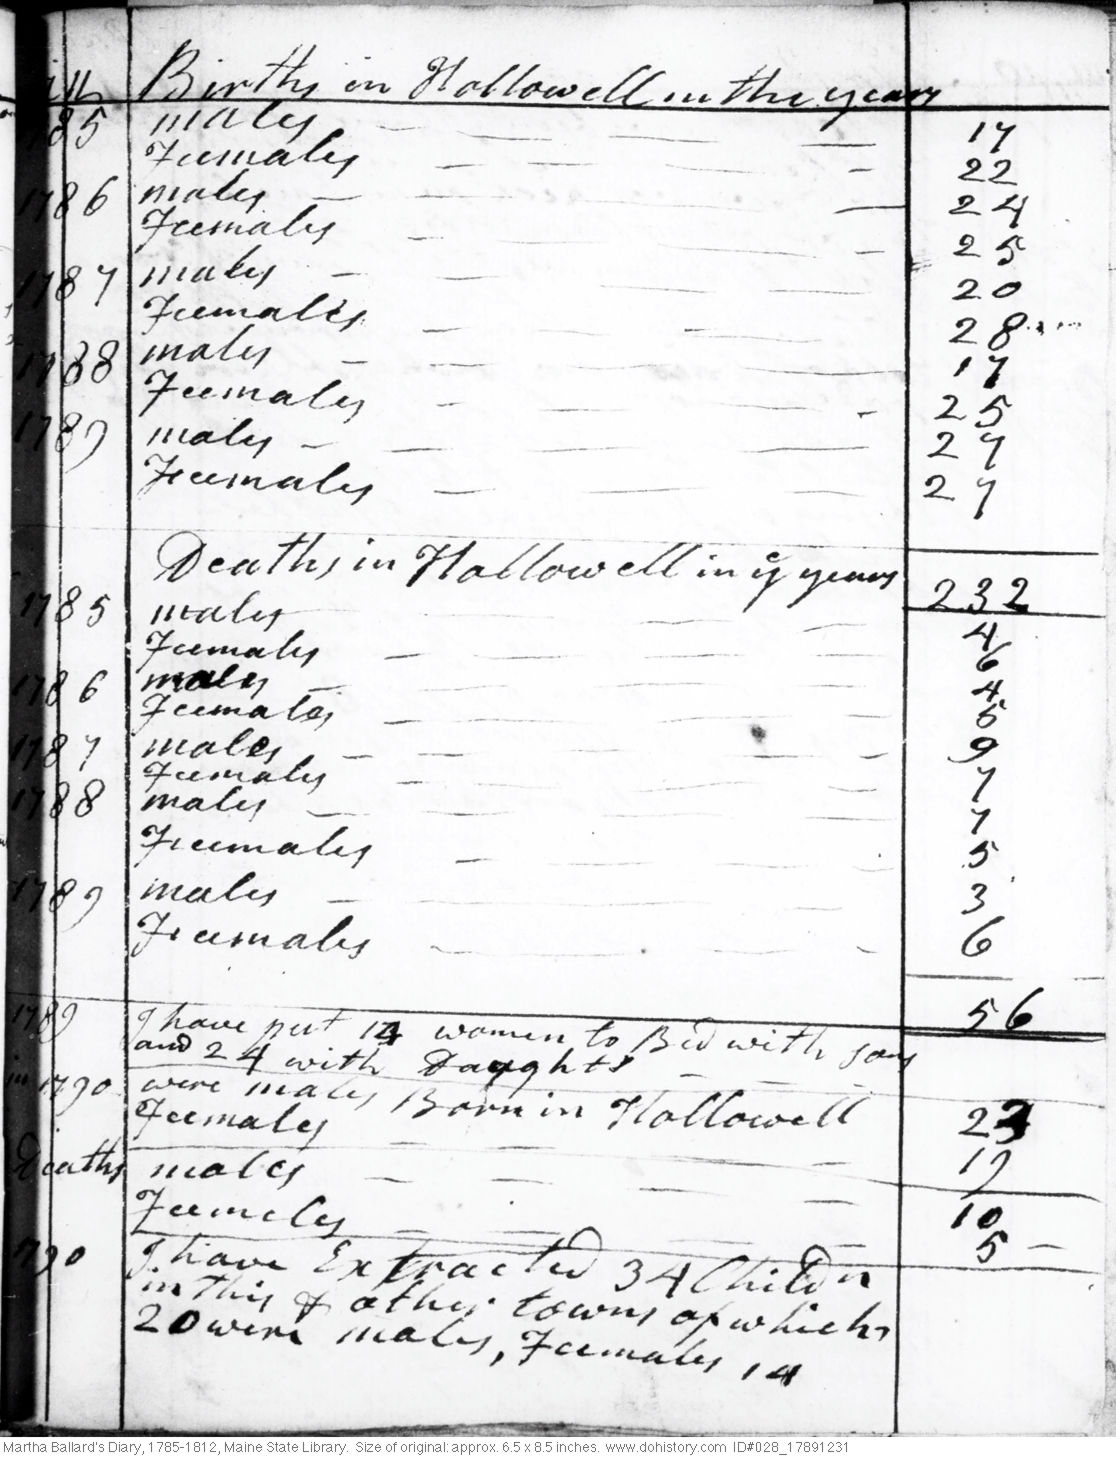 in Births in Hallowell in the years
1785 males 17
Feemales 22
1786 males 24
Feemales 25
1787 males 20
Feemales 28
1788 males 17
Feemales 25
1789 males 27
Feemales 27
Deaths in Hallowell in ye years 232
1785 males 4
Feemales 6
1786 males 4
Feemales 5
1787 males 9
Feemales 7
1788 males 7
Feemales 5
1789 males 3
Feemales 6
56
1789 I have put 14 women to Bed with sons
and 24 with Daughts
in 1790 were males Born in Hallowell 23
Feemales 17
Deaths males 10
Feemales 5
1790 I have Extracted 34 Childn
in this & other towns of which
20 were males, Feemales 14
Martha Ballard's Diary, 1785-1812, Maine State Library. Size of original: approx. 6.5 x 8.5 inches. www.dohistory.com ID#028_17891231